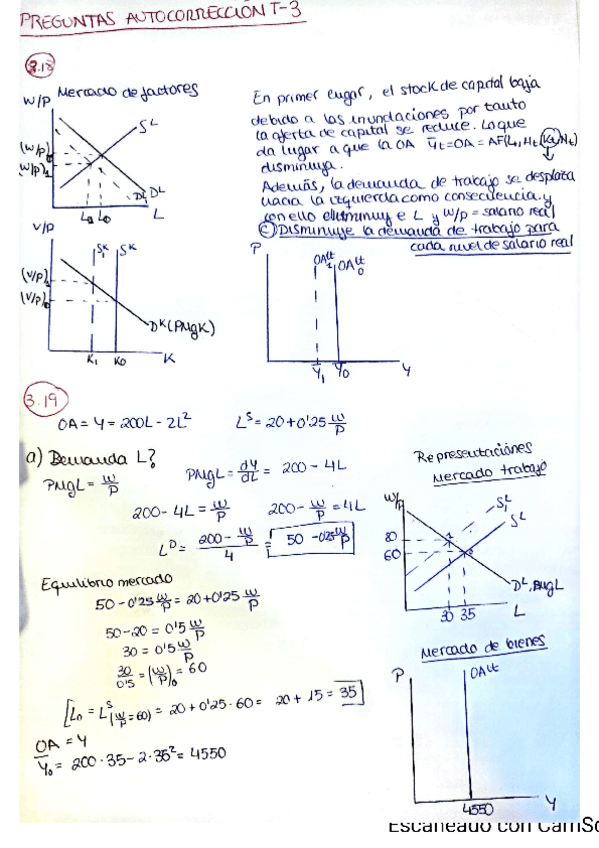 PREGUNTAS AUTOCORRECCION T-3
3.18
Mercado de factores
W/P
S^L
(W/P)0
(W/P)1
D1 D^L
L1 L0 L
En primer lugar, el stock de capital baja
debido a las inundaciones por tanto
la oferta de capital se reduce. Lo que
da lugar a que la OA Ȳt=OA=AF(Lt,Ht,(Kt),Nt)
disminuya.
Además, la demanda de trabajo se desplaza
hacia la izquierda como consecuencia y
con ello disminuye L y W/P = salario real
c) Disminuye la demanda de trabajo para
cada nivel de salario real
V/P
S^K1 S^K
(V/P)1
(V/P)0
D^K (PMgK)
K1 K0 K
P
OA^Lt1 OA^Lt0
Ȳ1 Ȳ0 Y
3.19
OA = Y = 200L - 2L² L^S = 20 + 0'25 W/P
a) Demanda L?
PMgL = W/P PMgL = dY/dL = 200 - 4L
200 - 4L = W/P 200 - W/P = 4L
L^D = (200 - W/P)/4 = 50 - 0'25 W/P
Equilibrio mercado
50 - 0'25 W/P = 20 + 0'25 W/P
50 - 20 = 0'5 W/P
30 = 0'5 W/P
30/0'5 = (W/P)0 = 60
[L0 = L^S (W/P = 60) = 20 + 0'25 · 60 = 20 + 15 = 35]
OA = Y
Ȳ0 = 200 · 35 - 2 · 35² = 4550
Representaciones
Mercado trabajo
W/P
S^L1
S^L
80
60
D^L, PMgL
30 35 L
Mercado de bienes
P
OA^Lt
4550 Y
Escaneado con CamSc